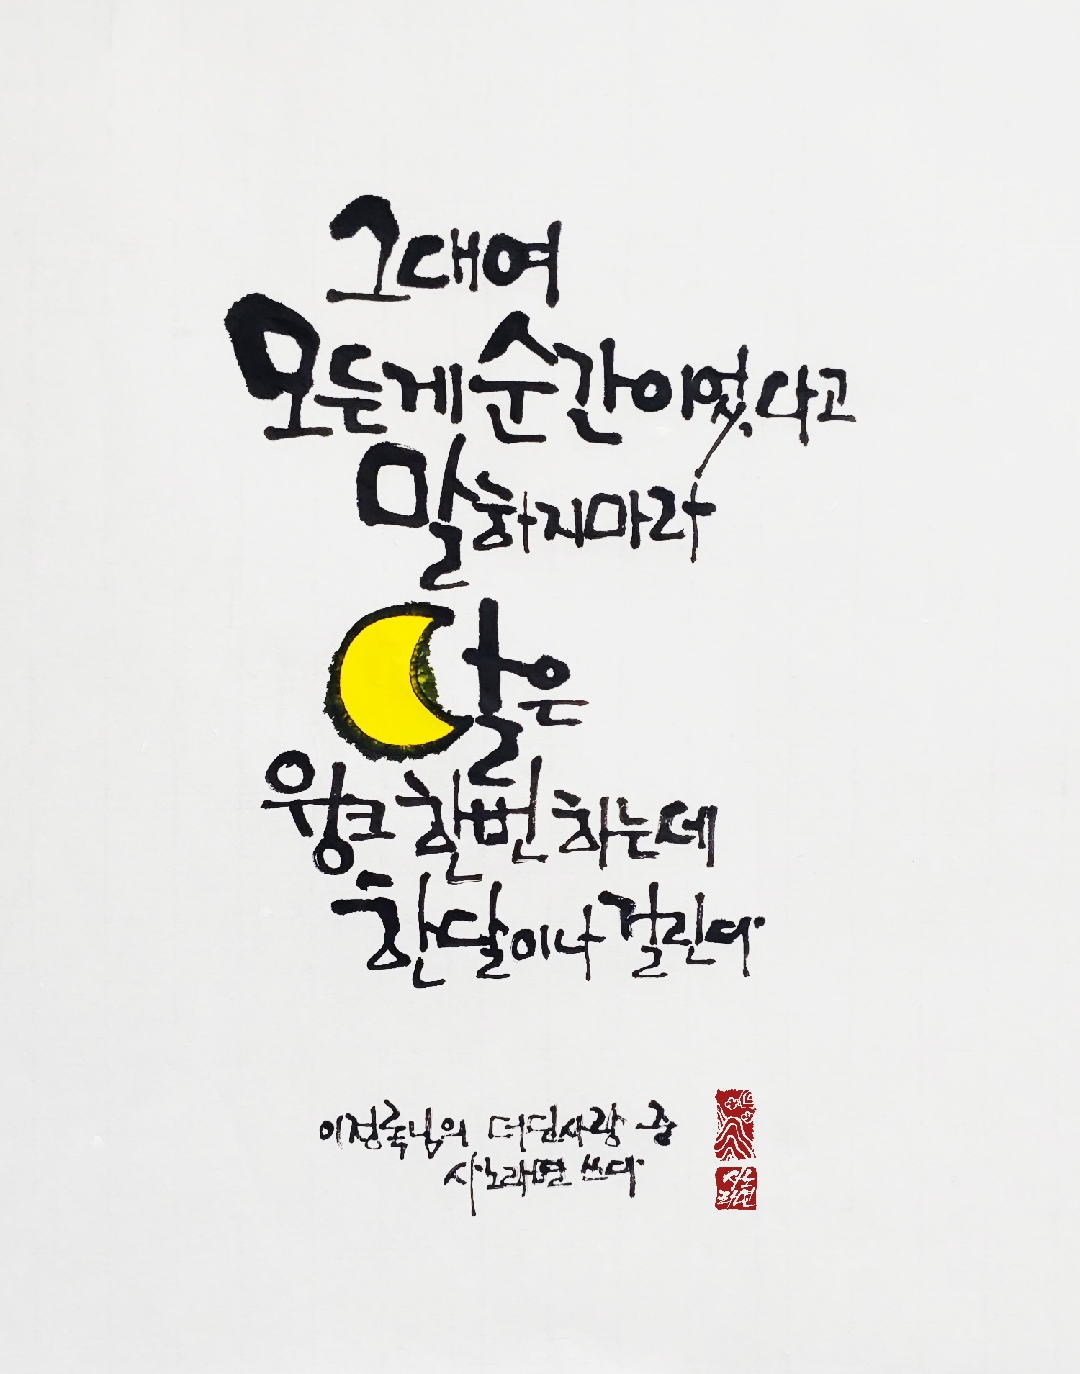 그대여
모든게 순간이었다고
말하지마라
달은
윙크 한번 하는데
한달이나 걸린다
이정록님의 더딘사랑 중
쓰다